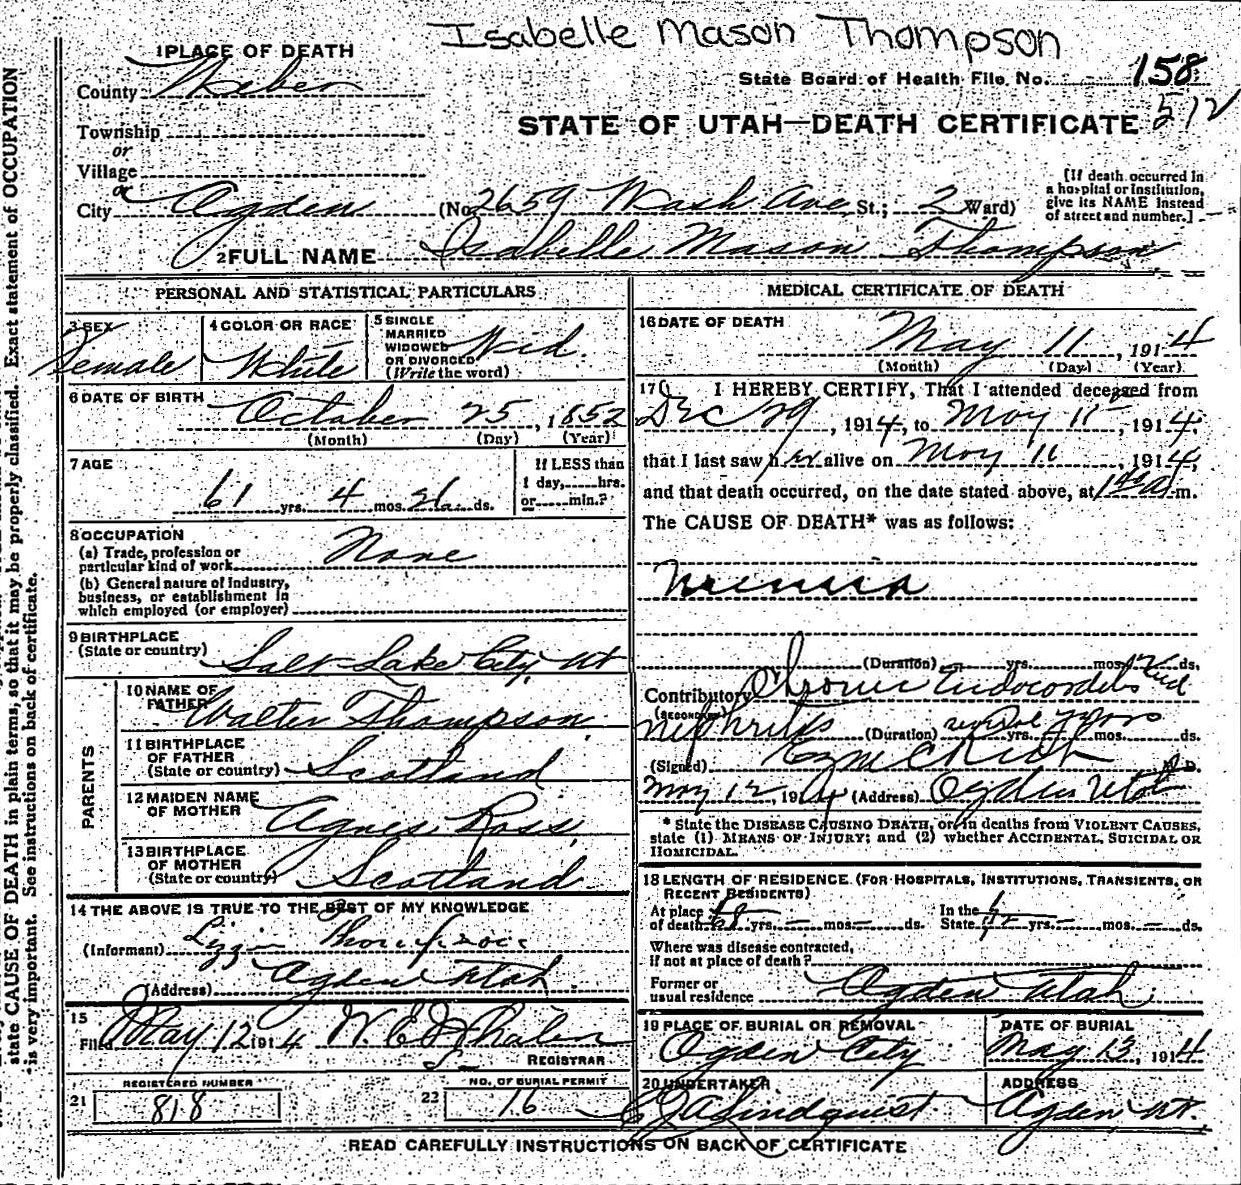 Isabelle Mason Thompson
1 PLACE OF DEATH
State Board of Health File No. 158
County Weber
512
STATE OF UTAH—DEATH CERTIFICATE
Township
or
Village
or
City Ogden (No. 2659 Wash Ave St.; 2 Ward)
[If death occurred in
a hospital or institution,
give its NAME instead
of street and number.]
2 FULL NAME Isabelle Mason Thompson
PERSONAL AND STATISTICAL PARTICULARS
3 SEX
Female
4 COLOR OR RACE
White
5 SINGLE
MARRIED
WIDOWED
OR DIVORCED
(Write the word)
Wid.
6 DATE OF BIRTH
October 25, 1852
(Month) (Day) (Year)
7 AGE
61 yrs. 4 mos. ds.
If LESS than
1 day,......hrs.
or......min.?
8 OCCUPATION
(a) Trade, profession or
particular kind of work None
(b) General nature of industry,
business, or establishment in
which employed (or employer)
9 BIRTHPLACE
(State or country) Salt Lake City, Ut
PARENTS
10 NAME OF
FATHER Walter Thompson
11 BIRTHPLACE
OF FATHER
(State or country) Scotland
12 MAIDEN NAME
OF MOTHER Agnes Ross
13 BIRTHPLACE
OF MOTHER
(State or country) Scotland
14 THE ABOVE IS TRUE TO THE BEST OF MY KNOWLEDGE
(Informant) Lizzie
(Address) Ogden Utah
15
Filed May 12 1914 W. E.
REGISTRAR
REGISTERED NUMBER
21 818
NO. OF BURIAL PERMIT
22 16
MEDICAL CERTIFICATE OF DEATH
16 DATE OF DEATH
May 11, 1914
(Month) (Day) (Year)
17 I HEREBY CERTIFY, That I attended deceased from
Dec 29, 1914, to May 11, 1914,
that I last saw her alive on May 11, 1914,
and that death occurred, on the date stated above, at m.
The CAUSE OF DEATH* was as follows:
(Duration) yrs. mos. 12 ds.
Contributory Chronic Endocarditis and
(SECONDARY)
Nephritis (Duration) several years yrs. mos. ds.
(Signed) M. D.
May 12, 191 (Address) Ogden Utah
* State the DISEASE CAUSING DEATH, or, in deaths from VIOLENT CAUSES,
state (1) MEANS OF INJURY; and (2) whether ACCIDENTAL, SUICIDAL OR
HOMICIDAL.
18 LENGTH OF RESIDENCE (FOR HOSPITALS, INSTITUTIONS, TRANSIENTS, OR
RECENT RESIDENTS)
At place
of death yrs. — mos. — ds.
In the
State yrs. — mos. — ds.
Where was disease contracted,
if not at place of death?
Former or
usual residence Ogden Utah
19 PLACE OF BURIAL OR REMOVAL
Ogden City
DATE OF BURIAL
May 13, 1914
20 UNDERTAKER
Lindquist
ADDRESS
Ogden Ut.
READ CAREFULLY INSTRUCTIONS ON BACK OF CERTIFICATE
state CAUSE OF DEATH in plain terms, so that it may be properly classified. Exact statement of OCCUPATION
is very important. See instructions on back of certificate.